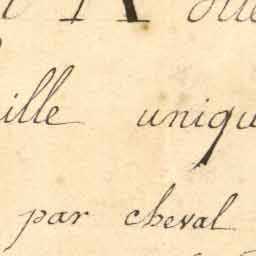 ille uniqu
par cheval